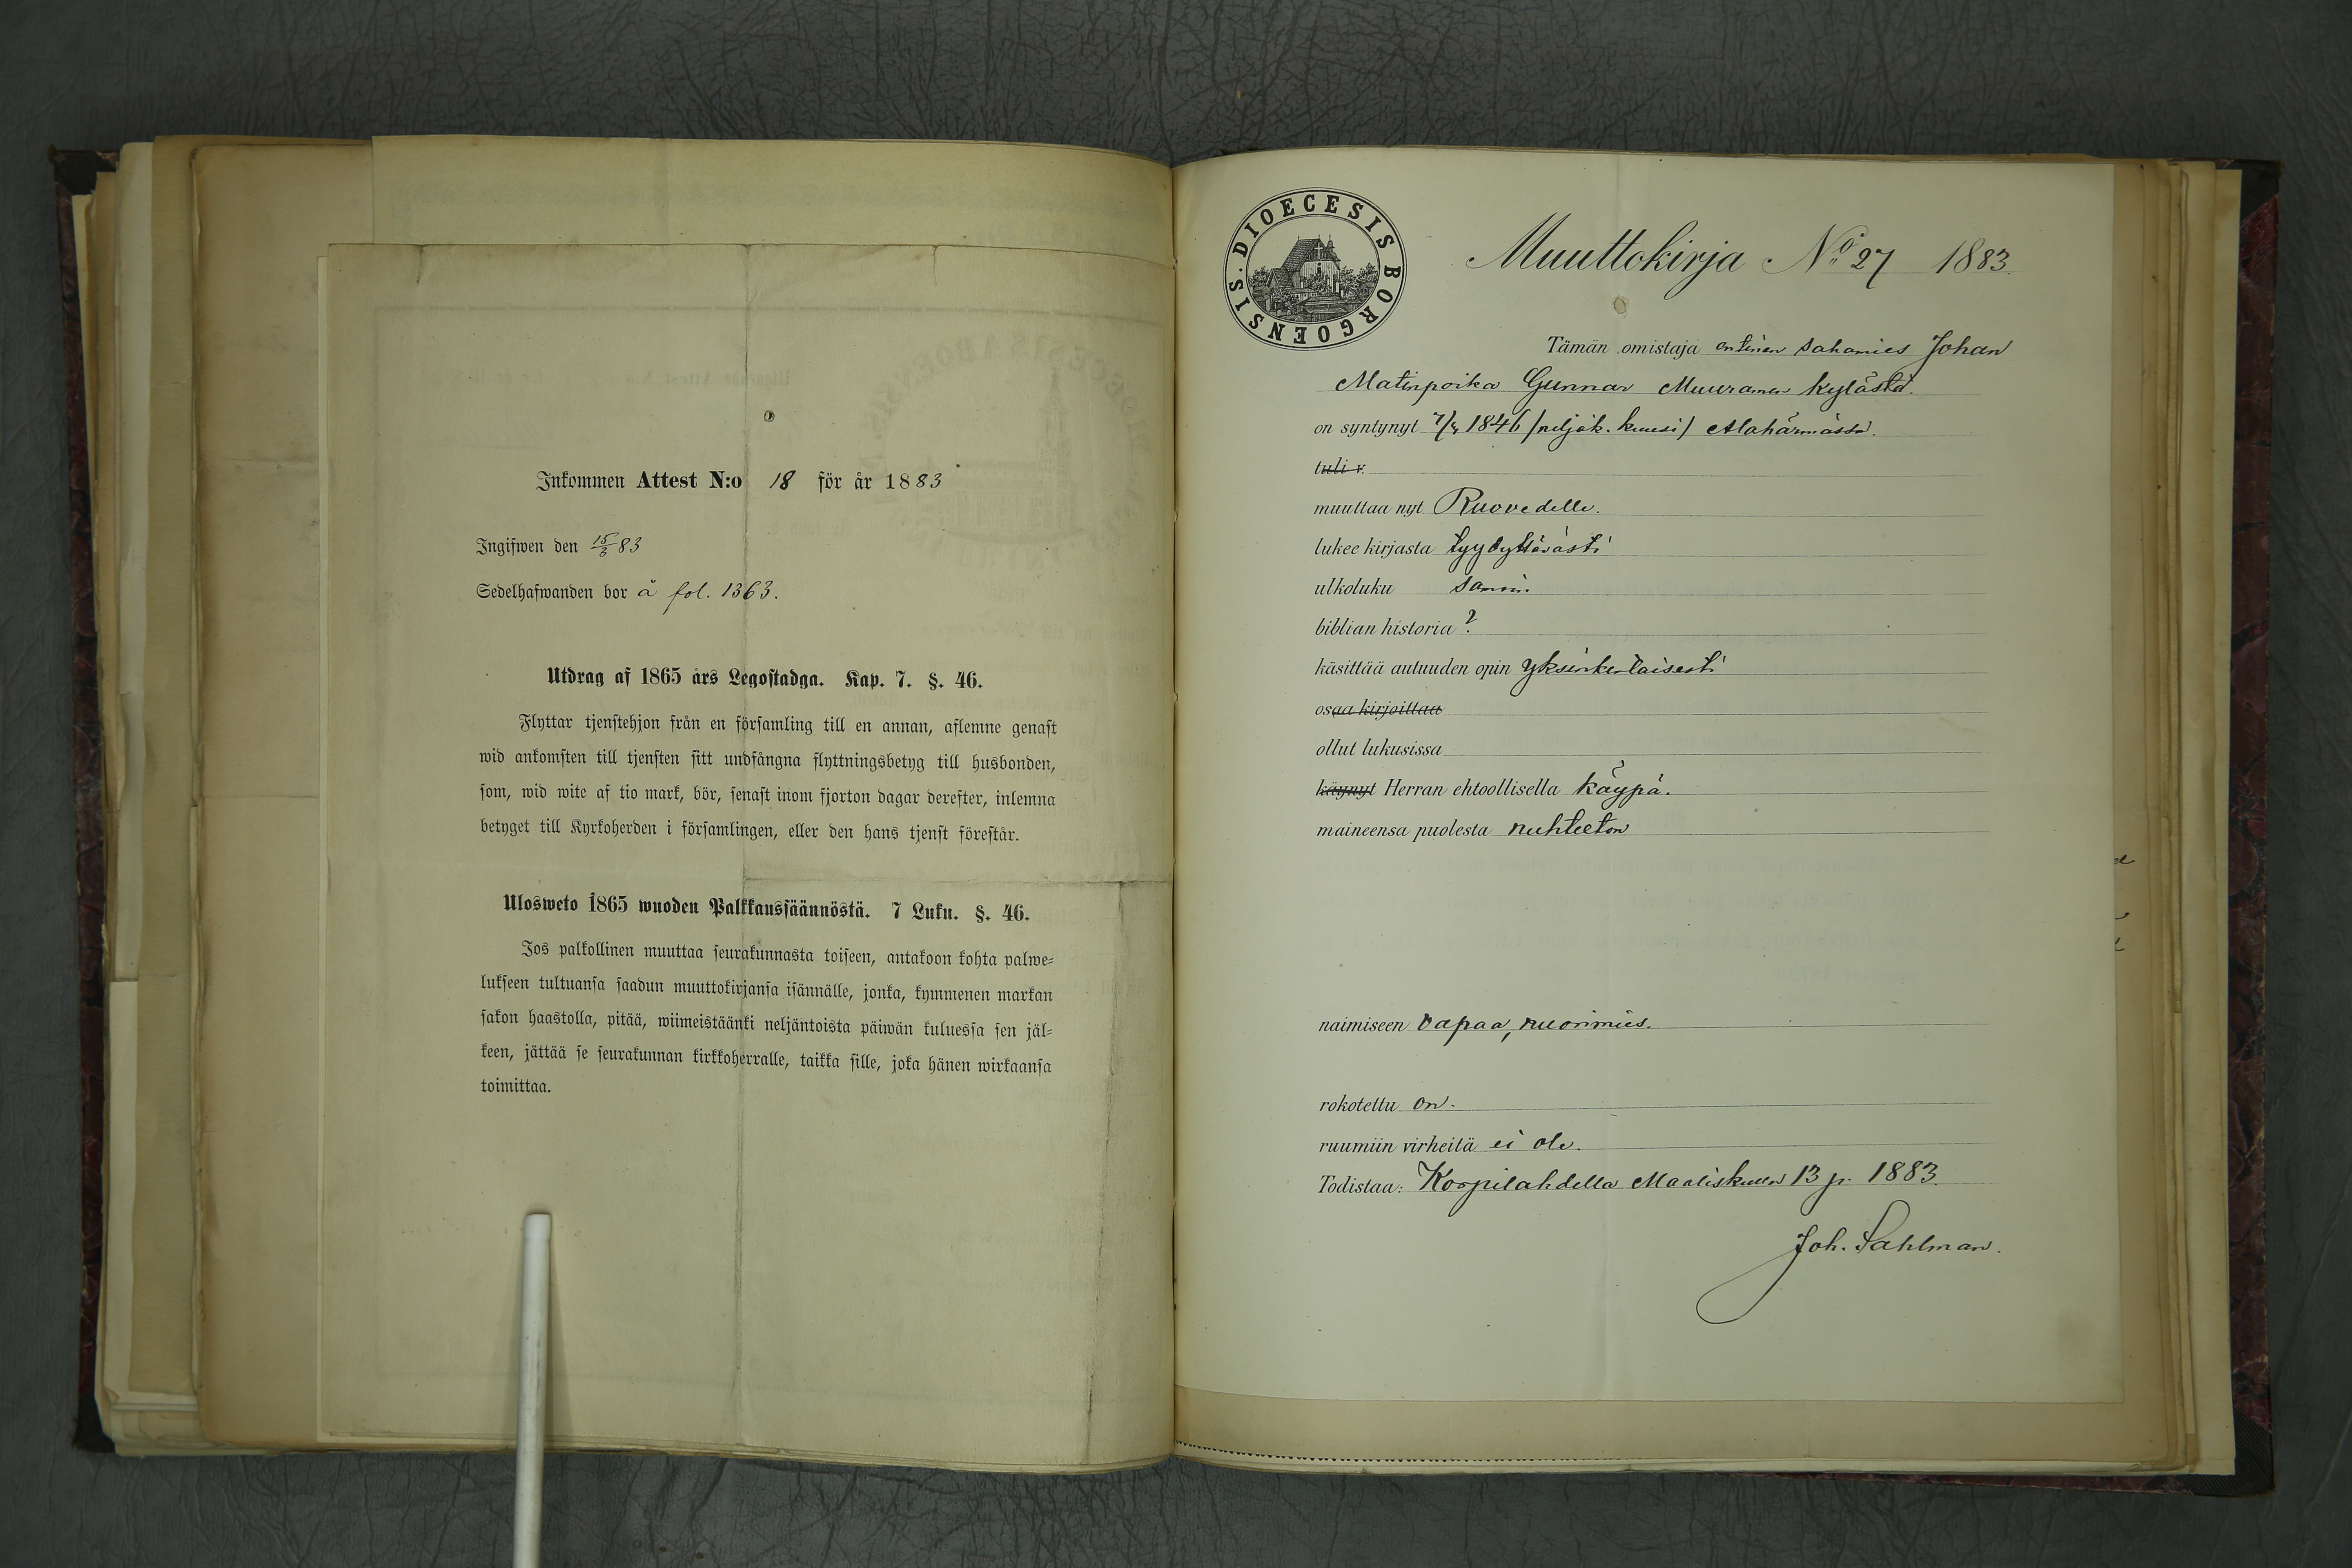 Inkommen Attest N:o 18 för år 1883
Ingifwen den 15/3 83
Sedelhafwanden bor å fol. 1363.
Utdrag af 1865 års Legostadga. Kap. 7. §. 46.
Flyttar tjenstehjon från en församling till en annan, aflemne genast
wid ankomsten till tjensten sitt undfångna flyttningsbetyg till husbonden,
som, wid wite af tio mark, bör, senast inom fjorton dagar derefter, inlemna
betyget till Kyrkoherden i församlingen, eller den hans tjenst förestår.
Ulosweto 1865 wuoden Palkkaussäännöstä. 7 Luku. §. 46.
Jos palkollinen muuttaa seurakunnasta toiseen, antakoon kohta palwe-
lukseen tultuansa saadun muuttokirjansa isännälle, jonka, kymmenen markan
sakon haastolla, pitää, wiimeistäänki neljäntoista päiwän kuluessa sen jäl-
keen, jättää se seurakunnan kirkkoherralle, taikka sille, joka hänen wirkaansa
toimittaa.
DIOECESIS BORGOENSIS.
Muuttokirja No 27 1883.
Tämän omistaja entinen sahamies Johan
Matinpoika Gunnar Muuramen kylästä.
on syntynyt 1846 /neljäk. kuusi/ Alahärmässä.
tuli v.
muuttaa nyt Ruovedelle.
lukee kirjasta tyydyttävästi
ulkoluku samoin
biblian historia ?
käsittää autuuden opin yksinkertaisesti
osaa kirjoittaa
ollut lukusissa
käynyt Herran ehtoollisella käypä.
maineensa puolesta nuhteeton
naimiseen vapaa, nuorimies.
rokotettu on.
ruumiin virheitä ei ole.
Todistaa: Korpilahdella Maaliskuun 13 p. 1883.
Joh. Sahlman.